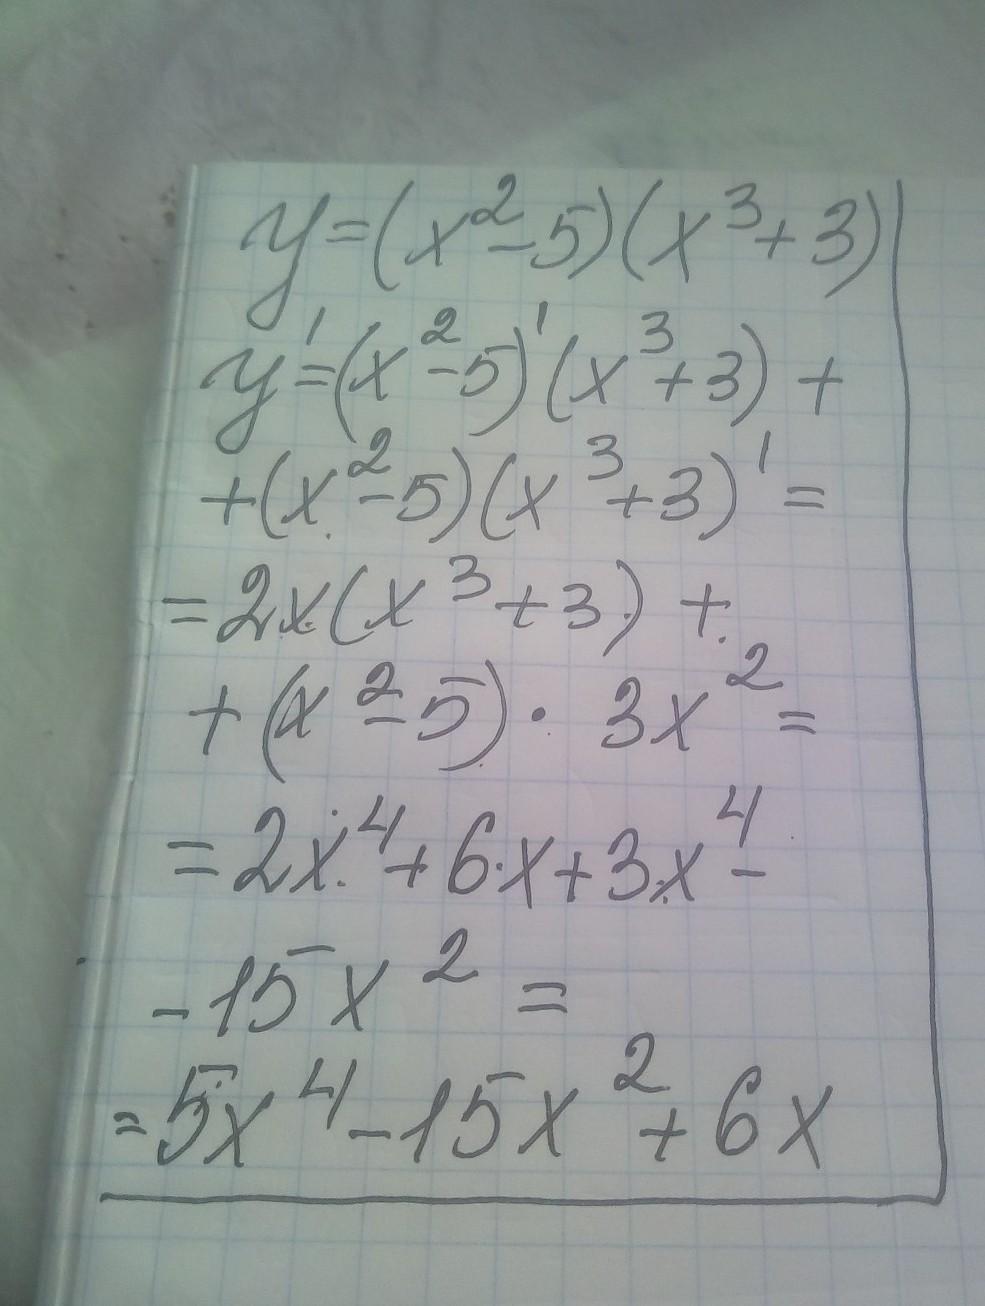 y=(x²-5)(x³+3)
y'=(x²-5)'(x³+3)+
+(x²-5)(x³+3)'=
=2x(x³+3)+
+(x²-5)·3x²=
=2x⁴+6x+3x⁴-
-15x²=
=5x⁴-15x²+6x